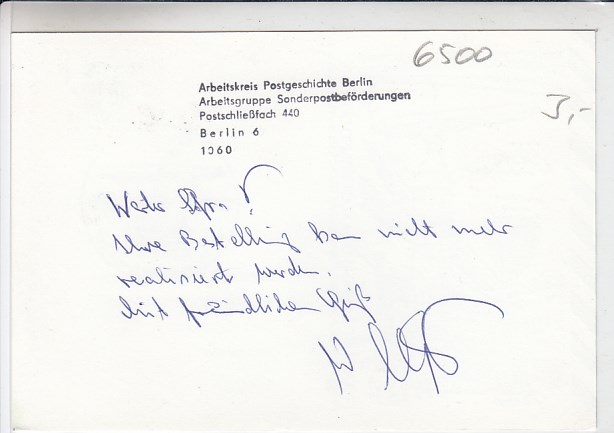 6500
3,-
Arbeitskreis Postgeschichte Berlin
Arbeitsgruppe Sonderpostbeförderungen
Postschließfach 440
Berlin 6
1060
Werte
Ihre Bestellung kann nicht mehr
realisiert werden.
Mit freundlichem Gruß